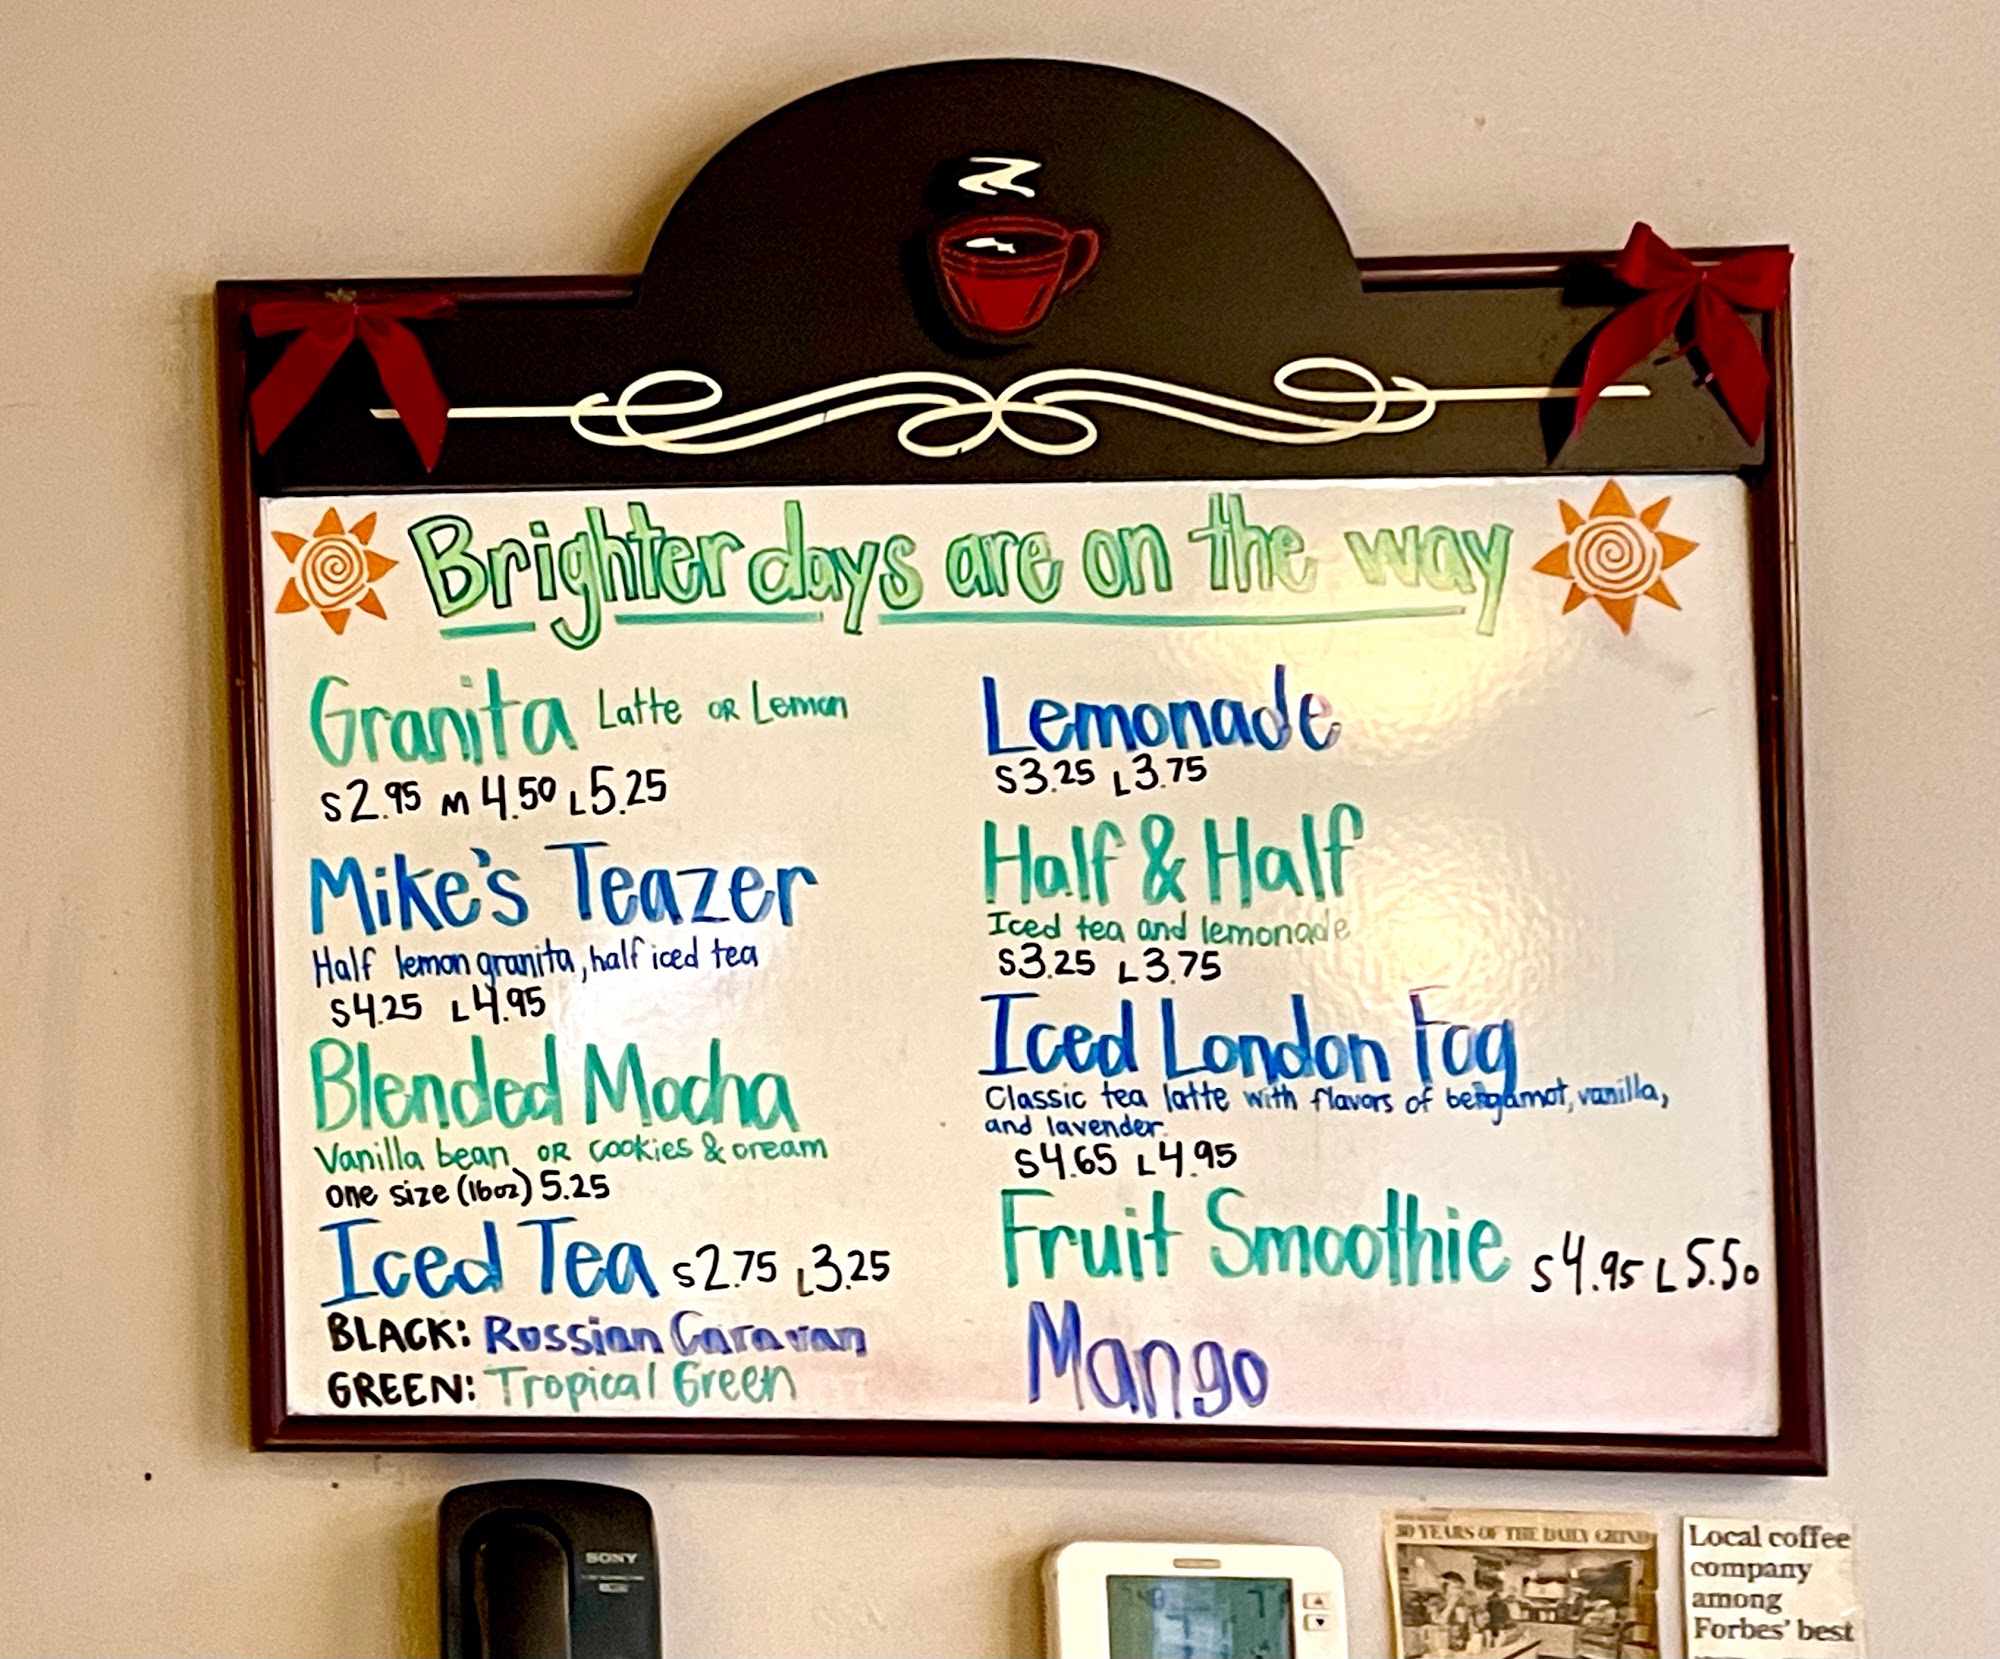 Brighter days are on the way
Granita Latte OR Lemon
S 2.95 M 4.50 L 5.25
Mike's Teazer
Half lemon granita, half iced tea
S 4.25 L 4.95
Blended Mocha
Vanilla bean OR cookies & cream
one size (16oz) 5.25
Iced Tea S 2.75 L 3.25
BLACK: Russian Caravan
GREEN: Tropical Green
Lemonade
S 3.25 L 3.75
Half & Half
Iced tea and lemonade
S 3.25 L 3.75
Iced London Fog
Classic tea latte with flavors of bergamot, vanilla,
and lavender.
S 4.65 L 4.95
Fruit Smoothie S 4.95 L 5.50
Mango
SONY
30 YEARS OF THE DAILY GRIND
Local coffee
company
among
Forbes' best